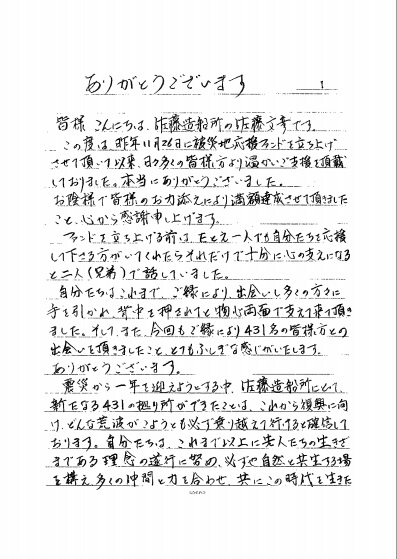 ありがとうございます
1
皆様 こんにちは、佐藤造船所の佐藤文孝です。
この度は、昨年11月26日に被災地応援ファンドを立ち上げ
させて頂いて以来、日々多くの皆様方より温かいご支援を頂戴
しておりました。本当にありがとうございました。
お陰様で皆様のお力添えにより満額達成させて頂きました
こと、心から感謝申し上げます。
ファンドを立ち上げる前は、たとえ一人でも自分たちを応援
して下さる方がいてくれたらそれだけで十分に心の支えになる
と二人(兄弟)で話していました。
自分たちはこれまで、ご縁により、出会いし多くの方々に
手を引かれ、背中を押されてと物心両面で支えて来て頂き
ました。そして、また、今回もご縁により431名の皆様方との
出会いを頂きましたこと、とてもふしぎな感じがいたします。
ありがとうございます。
震災から一年を迎えようとする中、佐藤造船所にとって、
新たなる431の拠り所ができたことは、これから復興に向
け、どんな荒波がこようとも必ず乗り越えて行けると確信して
おります。自分たちは、これまで以上に先人たちの生きざ
まである理念の遂行に努め、必ずや自然と共生する場
を構え、多くの仲間と力を合わせ、共にこの時代を生きた